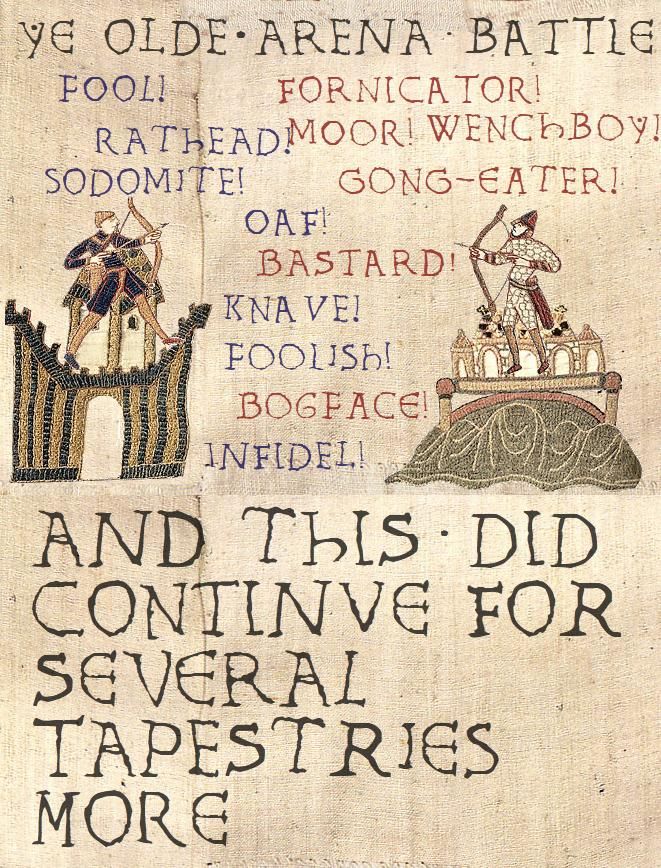 YE OLDE·ARENA·BATTLE
FOOL!
FORNICATOR!
RAThEAD!
MOOR! WENChBOY!
SODOMITE!
GONG-EATER!
OAF!
BASTARD!
KNAVE!
FOOLISh!
BOGFACE!
INFIDEL!
AND ThIS·DID
CONTINVE FOR
SEVERAL
TAPESTRIES
MORE